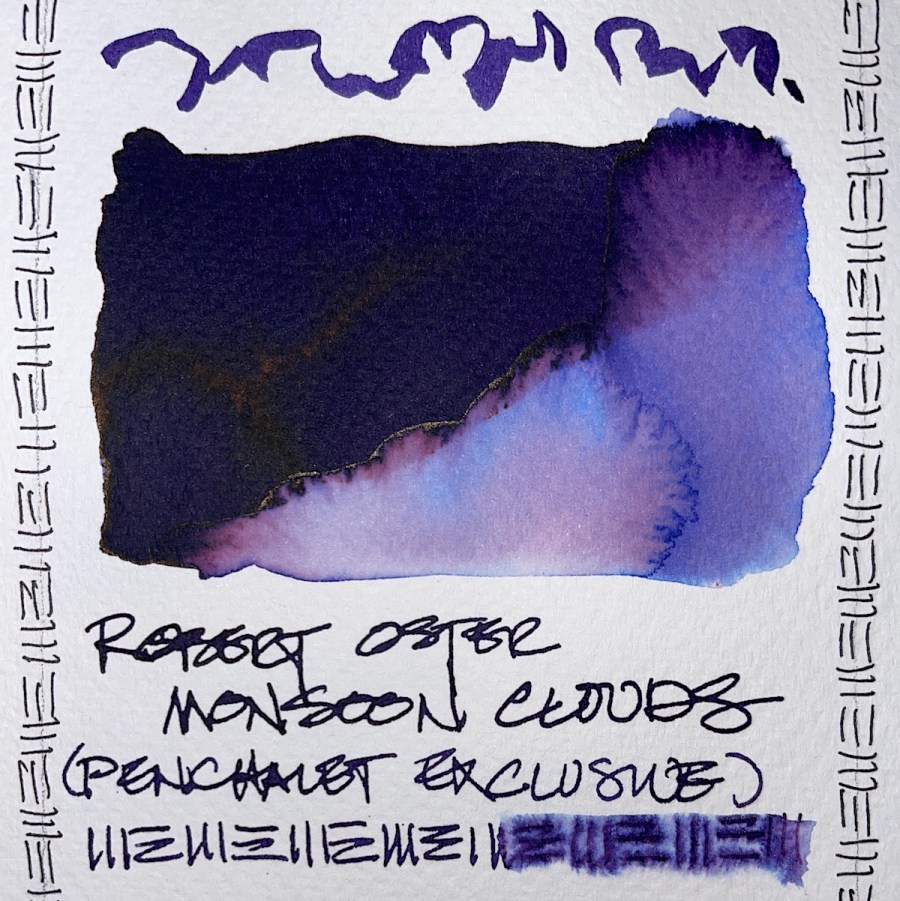 ROBERT OSTER
MONSOON CLOUDS
(PENCHALET EXCLUSIVE)